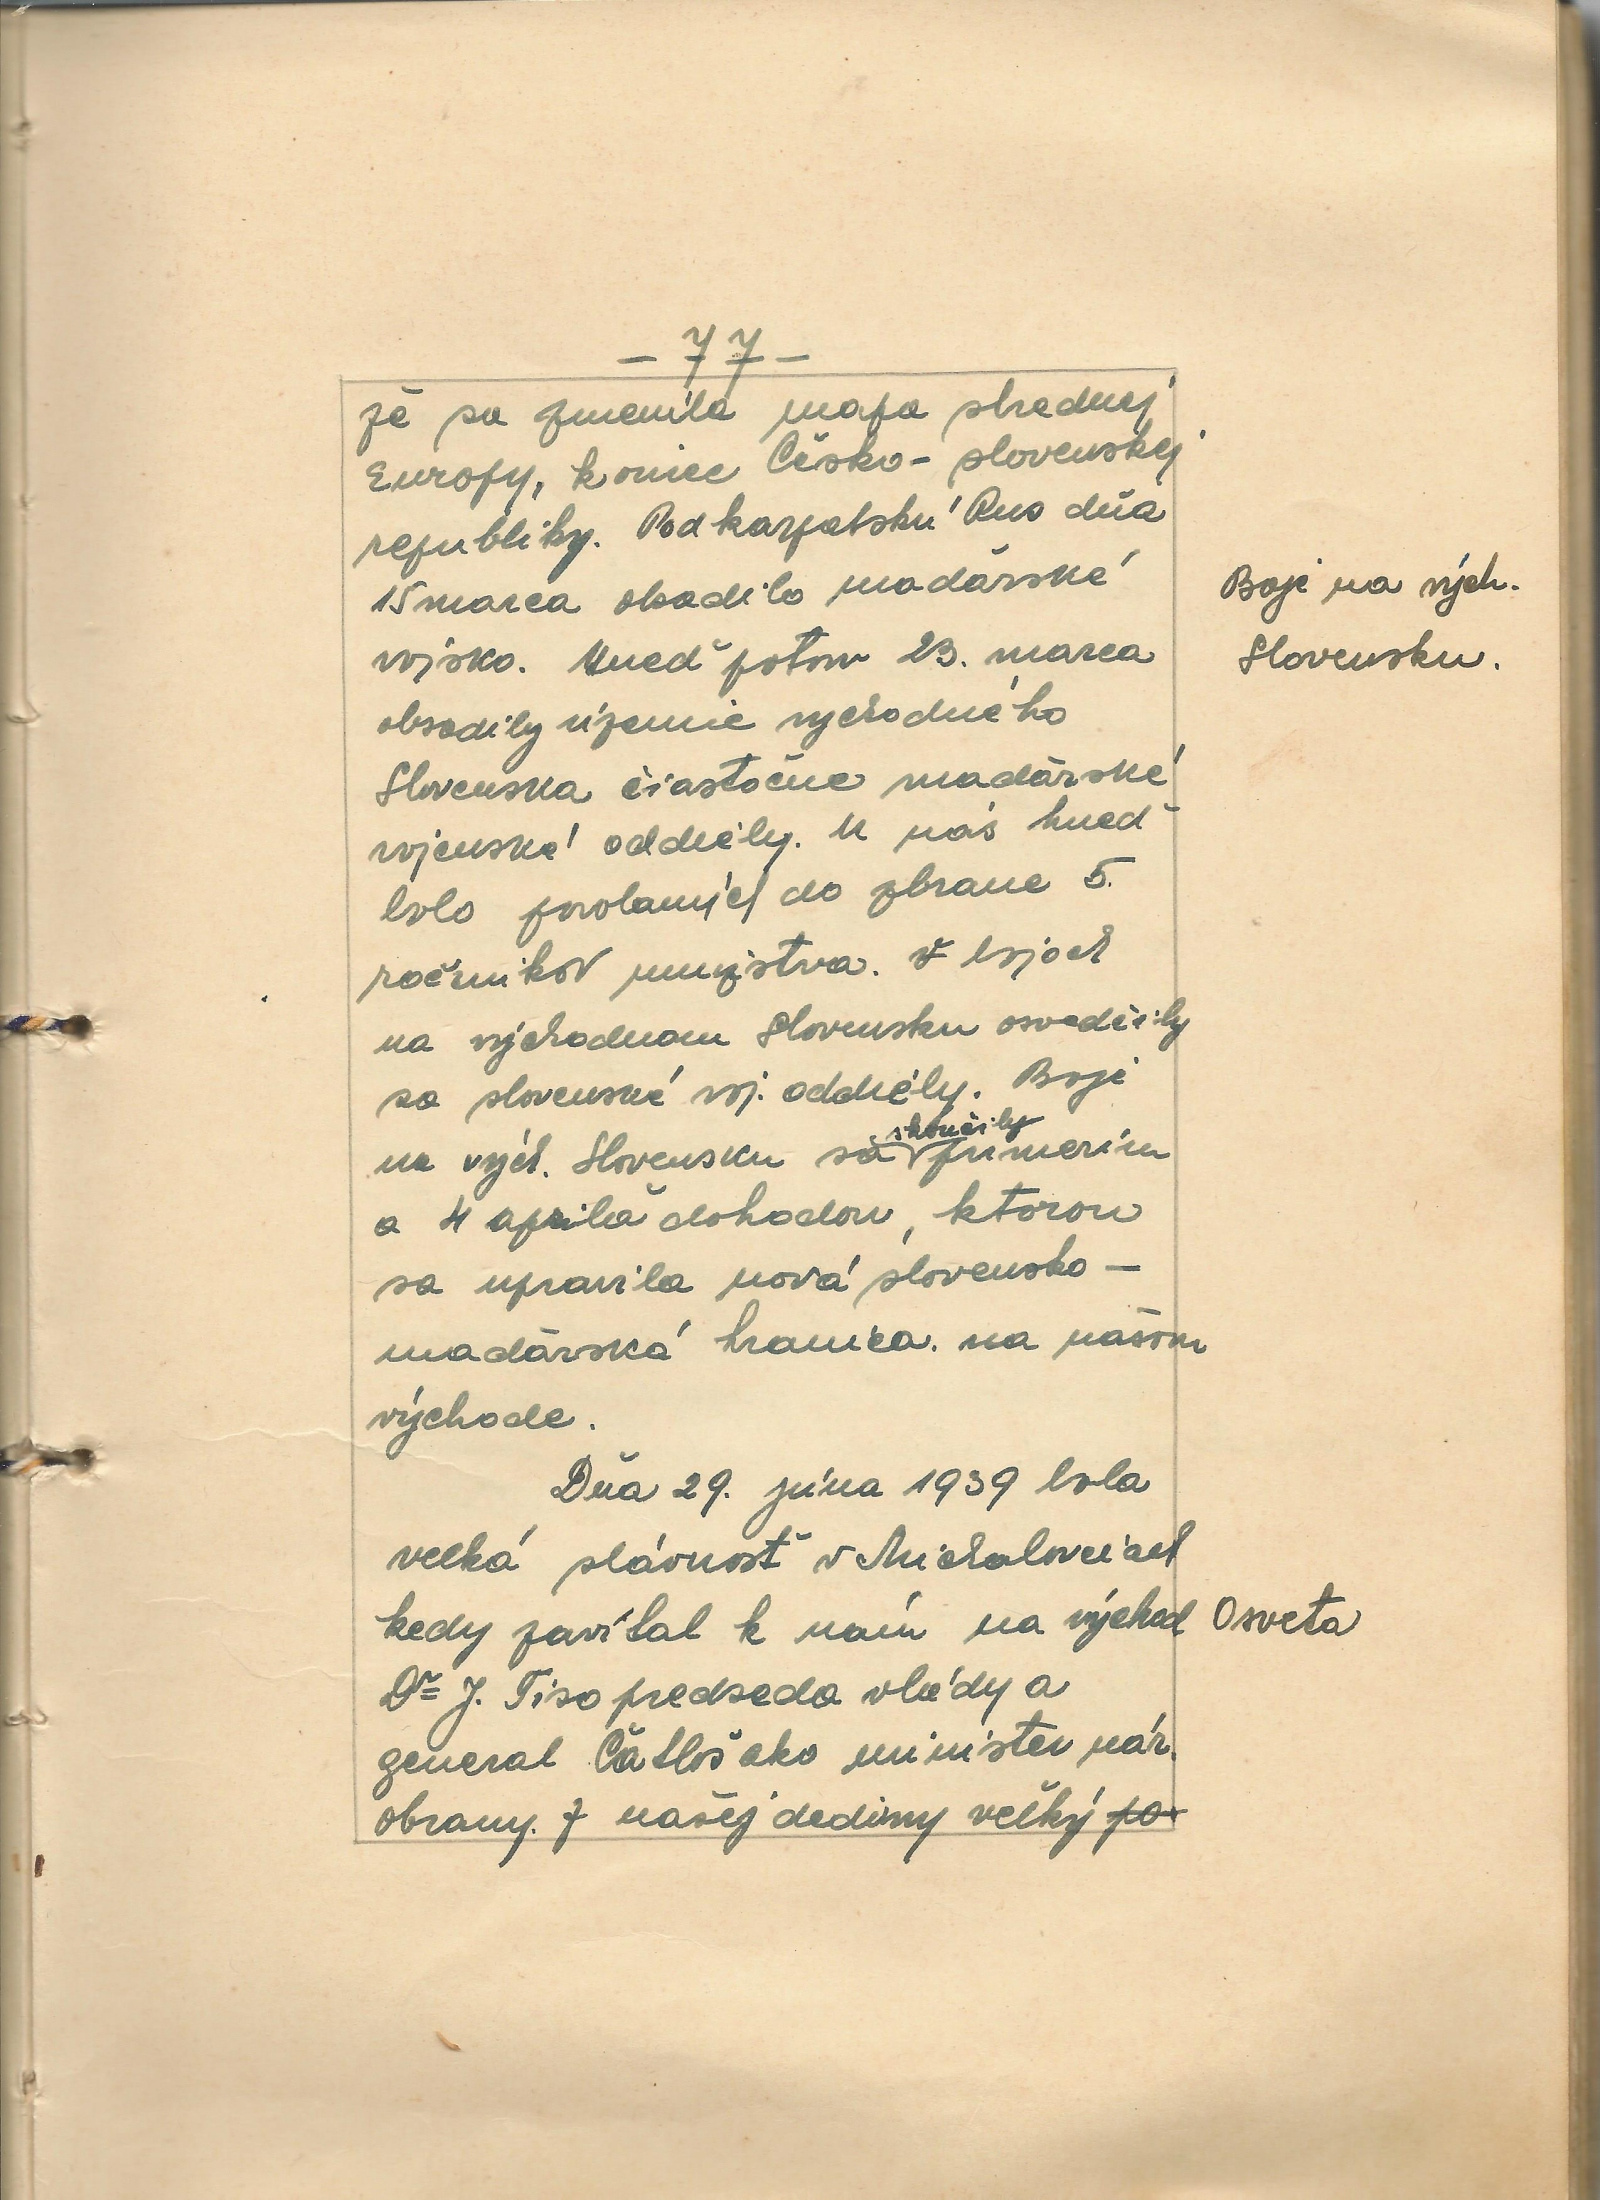 - 77 -
že sa zmenila mapa strednej
Europy, koniec Česko- slovenskej
republiky. Podkarpatskú Rus dňa
15 marca obsadilo maďarské
Boje na vých.
vojsko. Hneď potom 23. marca
Slovensku.
obsadily územie východného
Slovenska čiastočne maďarské
vojenské oddiely. U nás hneď
bolo povolaných do zbrane 5.
ročníkov mužstva. V bojoch
na východnom Slovensku osvedčily
sa slovenské voj. oddiely. Boje
na vých. Slovensku sa skončily prímerím
a 4 aprila dohodou, ktorou
sa upravila nová slovensko -
maďarská hranica. na našom
východe.
Dňa 29. júna 1939 bola
veľká slávnosť v Michalovciach
kedy zavítal k nám na východ
Osveta
Dr J. Tiso predseda vlády a
general Čatloš ako minister nár.
obrany. Z našej dediny veľký po-